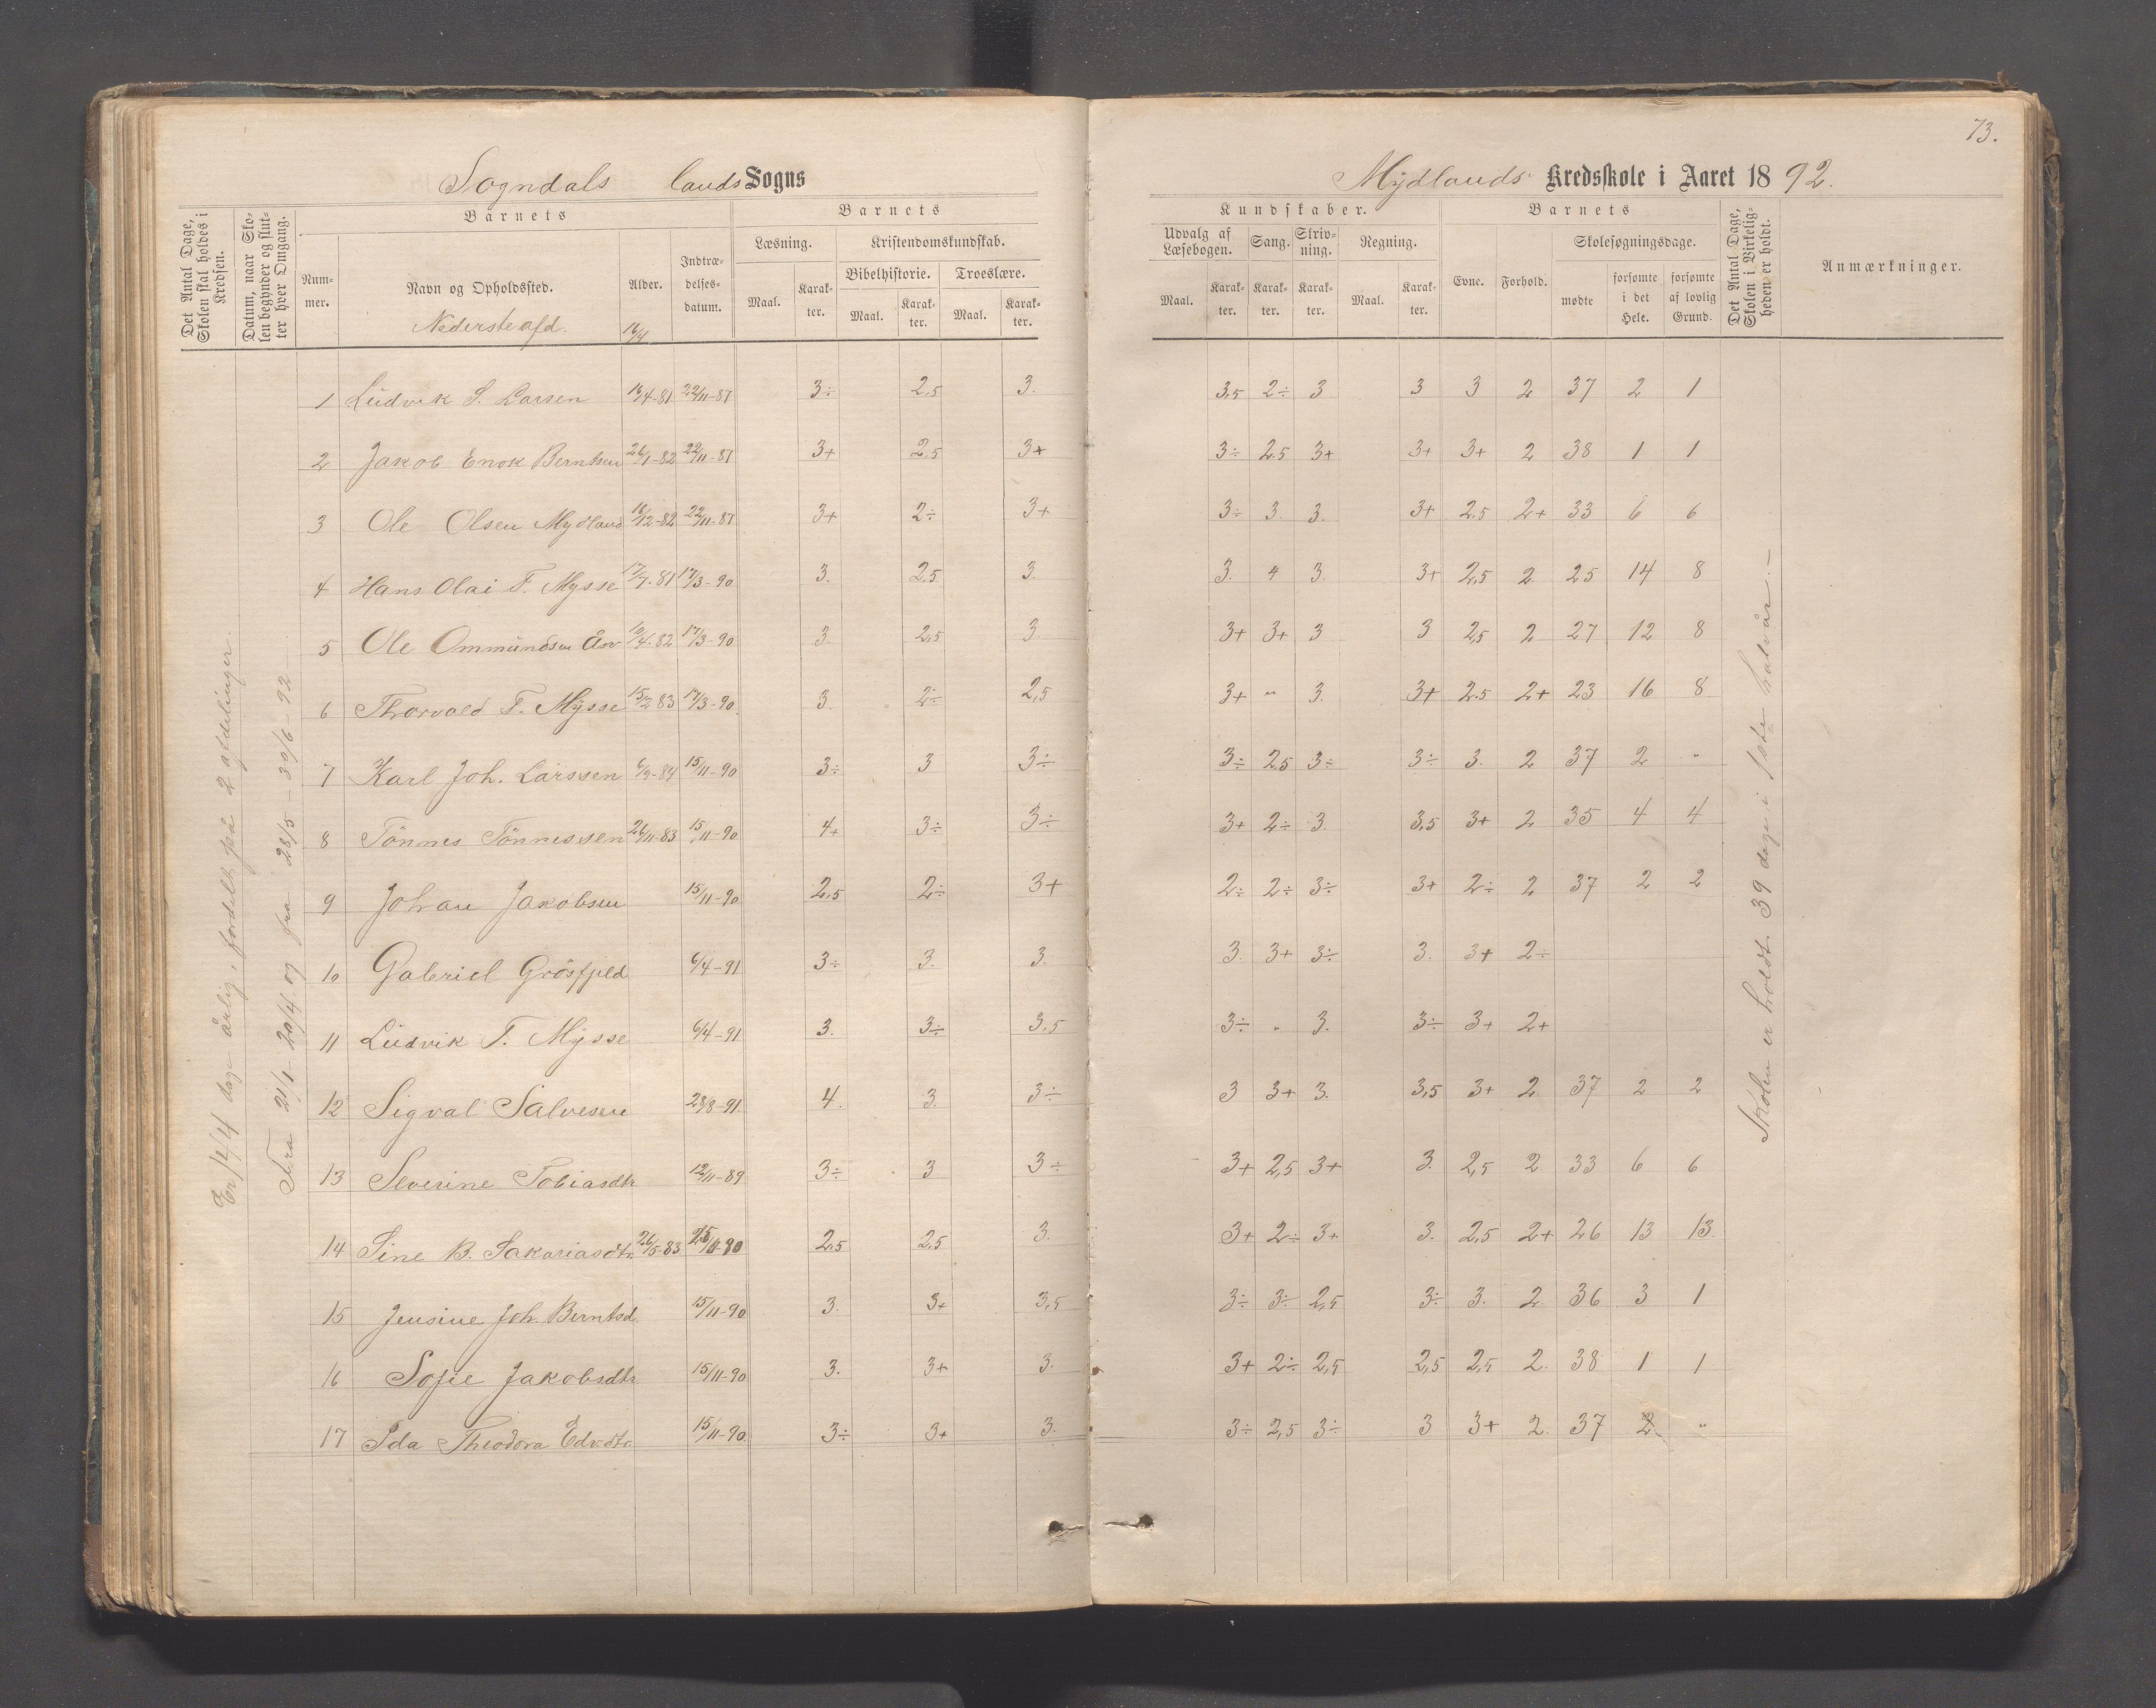 73.
Sogndals lands Sogns
Mydlands Kredsskole i Aaret 1892.
Det Antal Dage, Skolen skal holdes i Kredsen.
Datum, naar Skolen begynder og slutter hver Omgang.
Barnets
Nummer.
Navn og Opholdssted.
Nedersteafd.
Alder.
Indtrædelsesdatum.
Barnets
Læsning.
Maal.
Karakter.
Kristendomskundskab.
Bibelhistorie.
Maal.
Karakter.
Troeslære.
Maal.
Karakter.
Kundskaber.
Udvalg af Læsebogen.
Maal.
Karakter.
Sang.
Karakter.
Skrivning.
Karakter.
Regning.
Maal.
Karakter.
Barnets
Evne.
Forhold.
Skolesøgningsdage.
mødte
forsømte i det Hele.
forsømte af lovlig Grund.
Det Antal Dage, Skolen i Virkeligheden er holdt.
Anmærkninger.
Er 144 dage årlig, fordelt på 2 afdelinger
Fra 21/1 - 20/4. og fra 23/5 - 30/6 - 92
1 Ludvik S. Larsen 16/4-81 22/11-87 3÷ 2,5 3. 3,5 2÷ 3 3 3 2 37 2 1
2 Jakob Enok Berntsen 26/1-82 22/11-87 3+ 2,5 3+ 3÷ 2.5 3+ 3+ 3+ 2 38 1 1
3 Ole Olsen Mydland 16/12-82 22/11-87 3+ 2÷ 3+ 3÷ 3. 3. 3+ 2.5 2+ 33 6 6
4 Hans Olai T. Mysse 17/7-81 17/3-90 3. 2.5 3. 3. 4 3. 3+ 2,5 2 25 14 8
5 Ole Ommundsen 19/4-82 17/3-90 3. 2,5 3 3+ 3+ 3 3 2,5 2 27 12 8
6 Thorvald T. Mysse 15/2 83 17/3-90. 3. 2÷ 2,5 3+ " 3. 3+ 2.5 2+ 23 16 8
7 Karl Joh. Larssen 6/9-84 15/11-90 3÷ 3 3÷ 3÷ 2.5 3÷ 3÷ 3. 2 37 2 "
8 Tönnes Tönnessen 26/11-83 15/11-90 4+ 3÷ 3÷ 3+ 2÷ 3. 3,5 3+ 2 35 4 4
9 Johan Jakobsen 15/11-90 2,5 2÷ 3+ 2÷ 2÷ 3÷ 3+ 2÷ 2 37 2 2
10 Gabriel Grösfjeld 6/4-91 3÷ 3. 3. 3. 3+ 3÷ 3. 3+ 2÷
11 Ludvik T. Mysse 6/4-91 3. 3÷ 3,5 3÷ " 3. 3÷ 3+ 2+
12 Sigval Salvesen 28/8-91 4. 3. 3÷ 3 3+ 3. 3,5 3+ 2 37 2 2
13 Severine Tobiasdtr 12/11-89 3÷ 3 3÷ 3+ 2,5 3+ 3. 2,5 2 33 6 6
14 Sine B. Sakariasdtr. 26/5-83 3. 2,5 2,5 3+ 2÷ 3+ 3. 2,5 2+ 26 13 13
15 Jensine Joh. Berntsd. 15/11-90 3. 3+ 3,5 3÷ 3÷ 2,5 3÷ 3. 2 36 3 1
16 Sofie Jakobsdtr. 15/11-90 3. 3+ 3. 3+ 2÷ 2,5 2,5 2,5 2. 38 1 1
17 Ida Theodora Edv.dtr. 15/11-90 3÷ 3+ 3. 3÷ 2,5 3÷ 3 3+ 2. 37 2 "
Skolen er holdt 39 dage i 1ste halvår.-